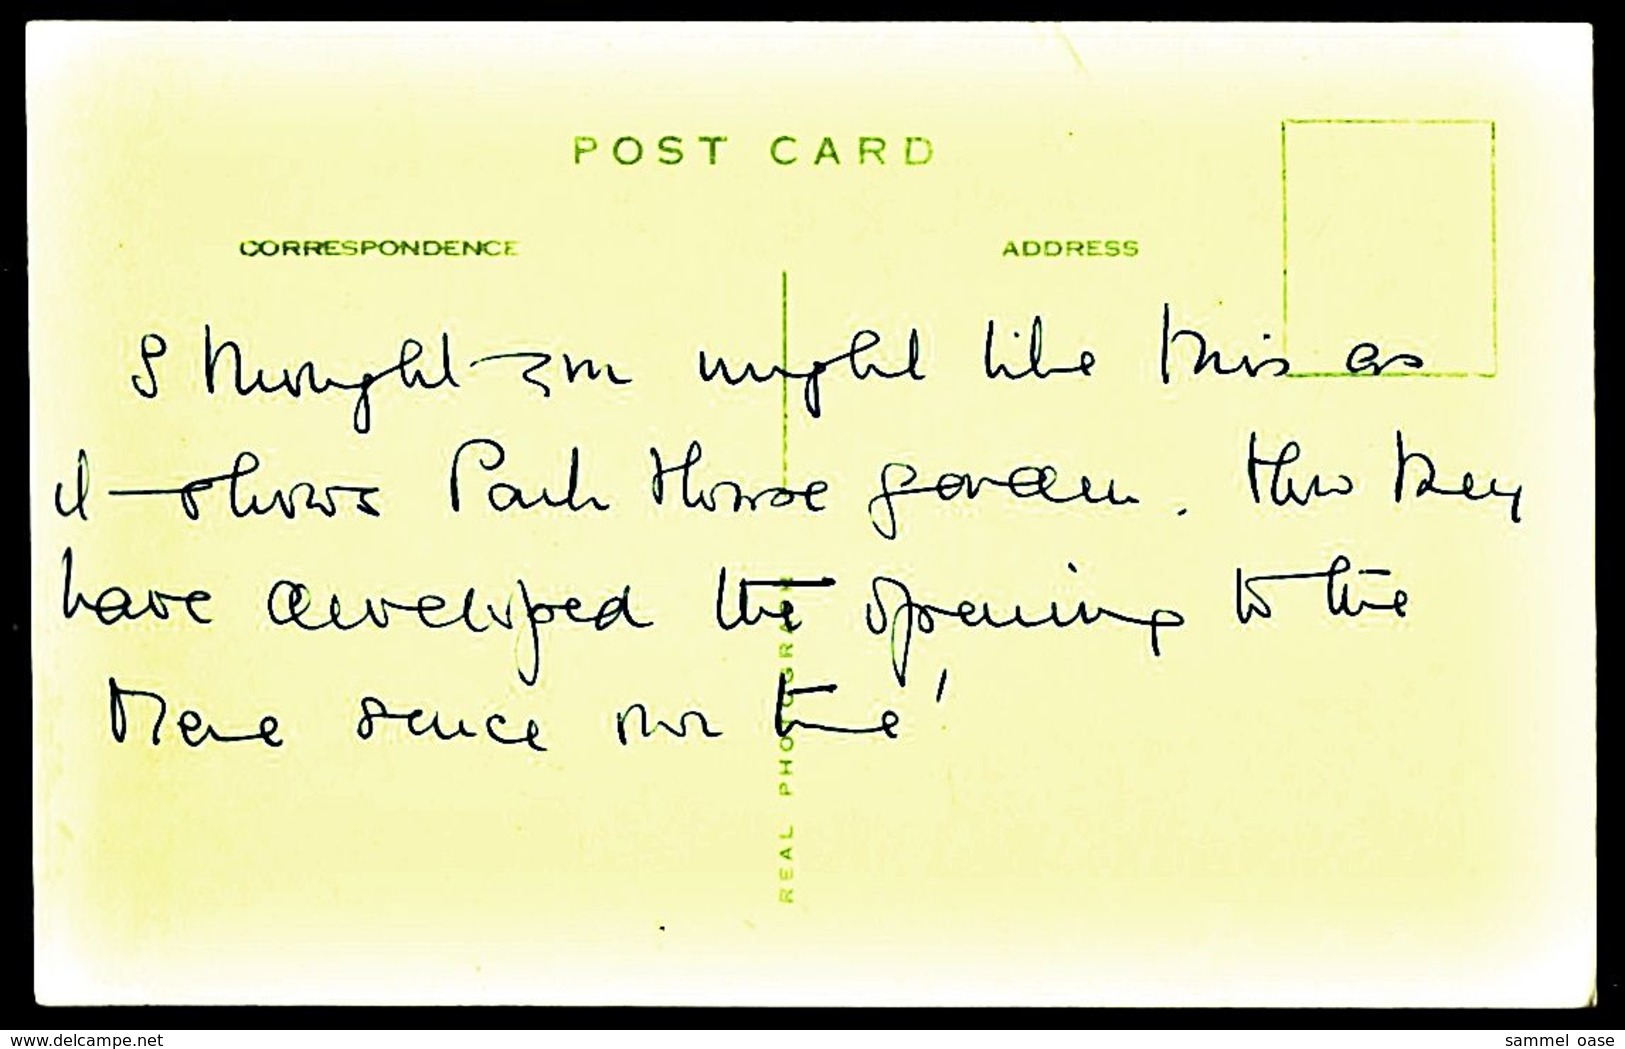 POST CARD
CORRESPONDENCE
ADDRESS
I thought you might like this as
it shows Park House garden. Tho' they
have developed the opening to the
Mere since our time!
REAL PHOTOGRAPH
www.delcampe.net
sammel_oase